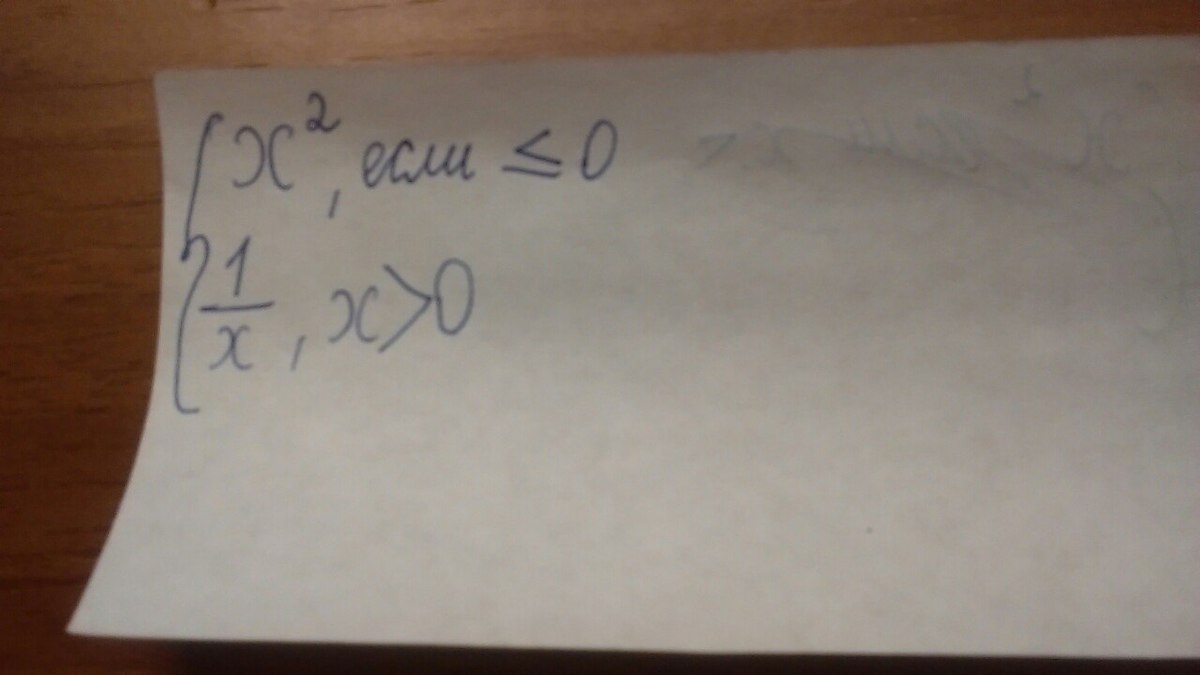 { x², если ≤ 0
1/x, x > 0